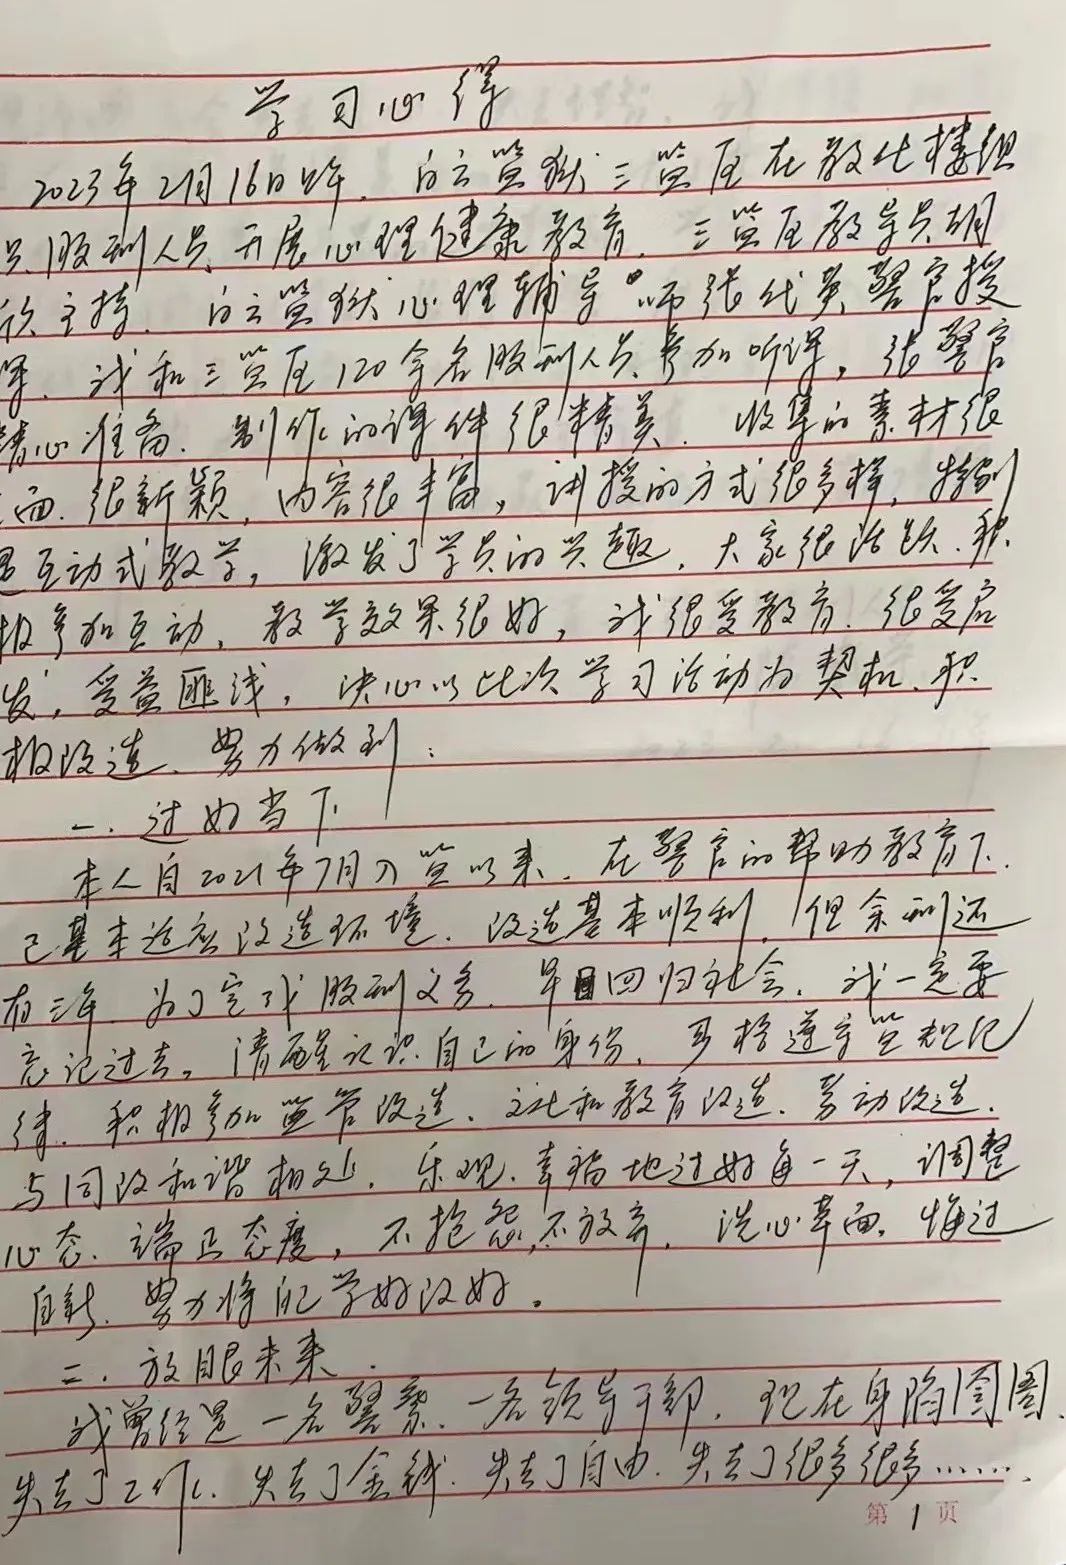 学习心得
2023年2月16日下午，白云监狱三监区在教化楼组
织服刑人员开展心理健康教育，三监区教导员胡
欣主持，白云监狱心理辅导师张代英警官授
课，我和三监区120余名服刑人员参加听课，张警官
精心准备，制作的课件很精美，收集的素材很
面，很新颖，内容很丰富，讲授的方式很多样，特别
是互动式教学，激发了学员的兴趣，大家很活跃，积
极参加互动，教学效果很好，我很受教育，很受启
发，受益匪浅，决心以此次学习活动为契机，积
极改造，努力做到：
一．过好当下
本人自2021年7月入监以来，在警官的帮助教育下，
已基本适应改造环境，改造基本顺利，但余刑还
有三年，为了完成服刑义务，早日回归社会，我一定要
忘记过去，清醒认识自己的身份，严格遵守监规纪
律，积极参加监管改造、文化和教育改造、劳动改造，
与同改和谐相处，乐观、幸福地过好每一天，调整
心态、端正态度，不抱怨，不放弃，洗心革面，悔过
自新，努力将自己学好改好。
二．放眼未来．
我曾经是一名警察、一名领导干部，现在身陷囹圄，
失去了工作、失去了金钱、失去了自由、失去了很多很多……，
第1页